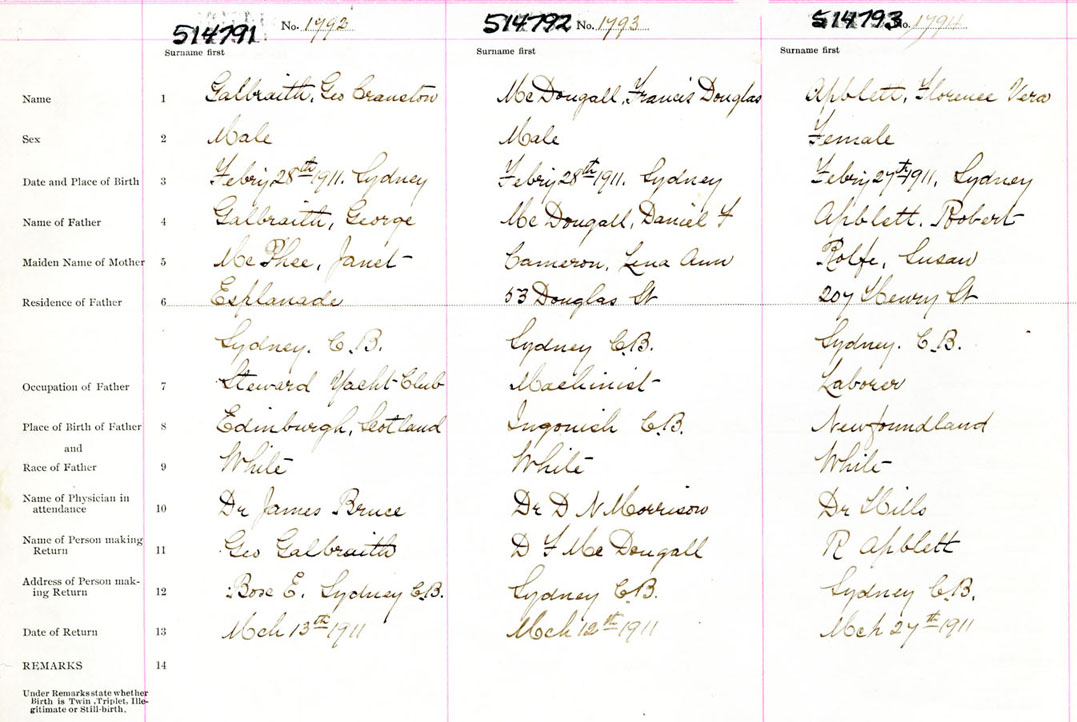 514791 No. 1792 514792 No. 1793 514793 No. 1794
Surname first Surname first Surname first
Name 1 Galbraith, Geo Cranston McDougall, Francis Douglas Apblett, Florence Vera
Sex 2 Male Male Female
Date and Place of Birth 3 Febry 28th 1911. Sydney Febry 28th 1911. Sydney Febry 27th 1911, Sydney
Name of Father 4 Galbraith, George McDougall, Daniel F Apblett, Robert
Maiden Name of Mother 5 McPhee, Janet Cameron, Lena Ann Rolfe, Susan
Residence of Father 6 Esplanade 53 Douglas St 207 Henry St
Sydney. C.B. Sydney C.B. Sydney. C.B.
Occupation of Father 7 Steward Yacht Club Machinist Laborer
Place of Birth of Father 8 Edinburgh, Scotland Ingonish C.B. Newfoundland
and
Race of Father 9 White White White
Name of Physician in
attendance 10 Dr James Bruce Dr D N Morrison Dr Hills
Name of Person making
Return 11 Geo Galbraith D F McDougall R Apblett
Address of Person mak-
ing Return 12 Box E. Sydney C.B. Sydney C.B. Sydney C.B.
Date of Return 13 Mch 13th 1911 Mch 12th 1911 Mch 27th 1911
REMARKS 14
Under Remarks state whether
Birth is Twin, Triplet, Ille-
gitimate or Still-birth.